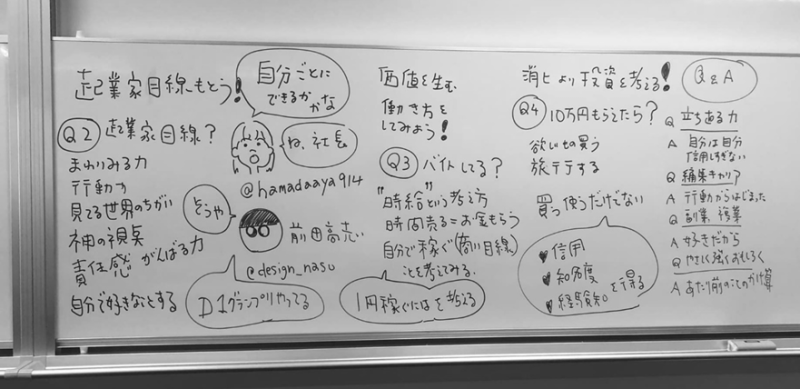 起業家目線もとう!
自分ごとに
できるかな
Q2 起業家目線?
まわりみる力
行動力
見てる世界のちがい
神の視点
責任感 がんばる力
自分で好きなことする
ね、社長
@hamadaaya914
そうや
前田高志
@design_nasu
D1グランプリやってる
価値を生む
働き方を
してみよう!
Q3 バイトしてる?
"時給"という考え方
時間売る=お金もらう
自分で稼ぐ(商い目線)
ことを考えてみる.
1円稼ぐにはを考える
消ヒより投資を考える!
Q4 10万円もらえたら?
欲しいもの買う
旅行する
買う使うだけでない
信用
知名度
経験知
を得る
Q&A
Q 立ち直る力
A 自分は自分
信用しすぎない
Q 編集きっかけ?
A 行動からはじまった
Q 副業
A 好きだから
Q やさしく強くおもしろく
A あたり前のことのかけ算